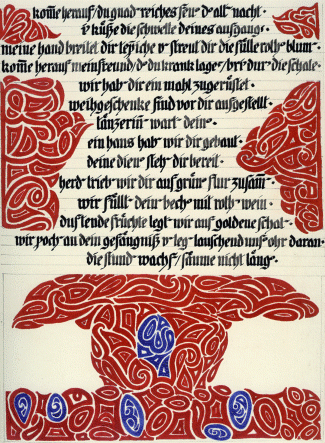 kom̄e herauf/ du gnad reiches feu'r d' alt' nacht·
i' küße die schwelle deines aufgang's·
meine hand breitet dir teppiche u' streut dir die fülle roth' blum'·
kom̄e herauf mein freund/ d' du krank lagst/ bri' dur' die schale·
wir hab' dir ein mahl zugerüstet·
weihgeschenke sind vor dir ausgestellt·
tänzerin̄' wart' dein'·
ein haus hab' wir dir gebaut·
deine dien' steh' dir bereit·
herd' trieb' wir dir auf grün' flur zusam̄'·
wir füllt' dein' bech' mit roth' wein·
duftende früchte legt' wir auf goldene schal'·
wir poch' an dein gefängniß u' leg' lauschend uns' ohr daran·
die stund' wachs'/ säume nicht läng'·